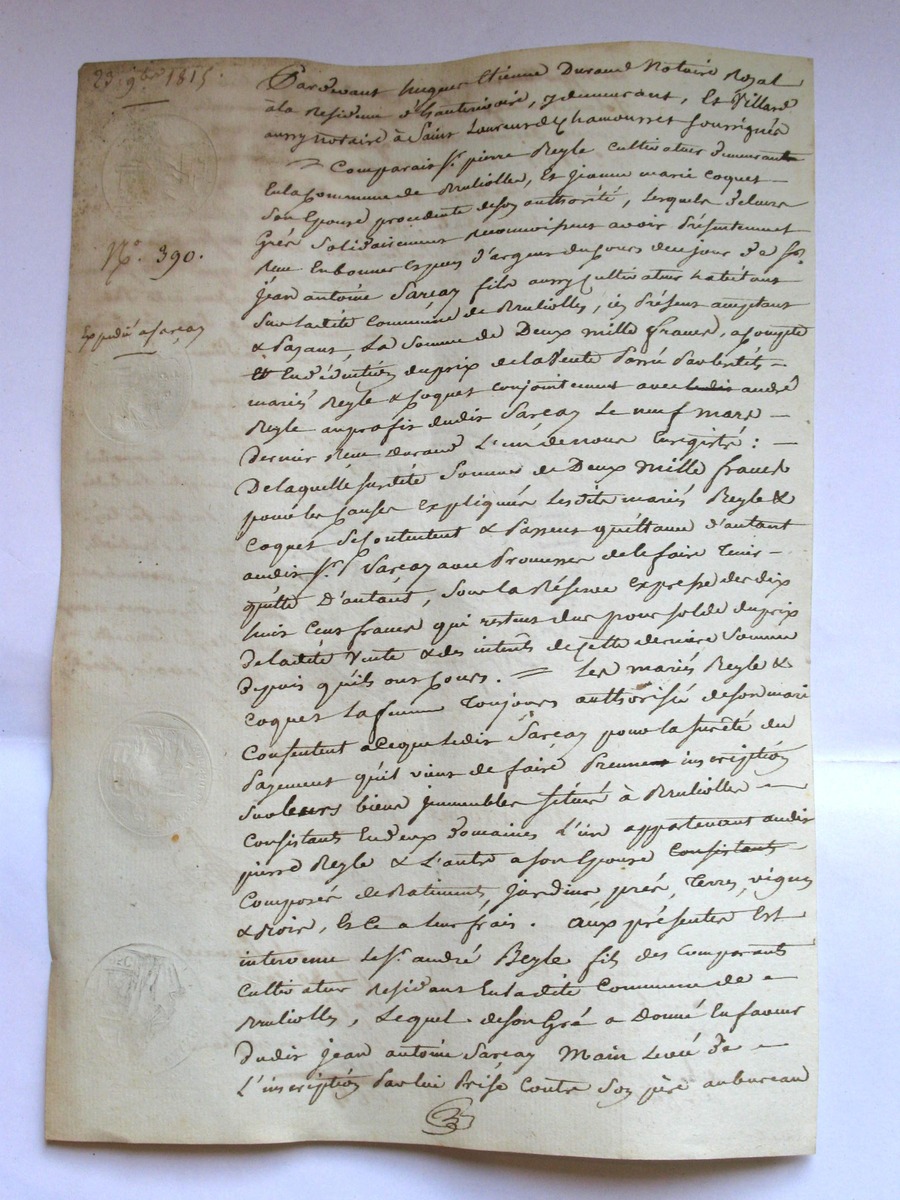 23. 9bre 1815.
Pardevant hugues Etienne Durand Notaire Royal
à la Residence d'hauterivoire, y demeurant, Et Villard
aussy notaire à Saint Laurent de Chamousset soussignés
Comparait Sr. pierre Reyle cultivateur demeurant
En la Commune de Brullolles, Et jeanne marie coquet
Son Epouse procedente de son authorité, lesquels de leurs
Grés Solidairement reconnoissent avoir Présentement
N°. 390.
Reçu En bonnes Espèces d'argent du Cours de ce jour de Sr.
jean antoine Sarcay fils aussy Cultivateur habitant
Sur la dite Commune de Brullolles, ici Présent acceptant
Expedié a Sarcay
& Payant, La Somme de Deux mille francs, a compte
Et En déduction du prix de la Vente Passée Par les dits
mariés Reyle & Coquet conjointement avec ledit andré
Reyle au profit dudit Sarcay Le neuf mars
Dernier Reçu Durand L'un de nous Enregistré :
De laquelle susdite Somme de Deux mille francs
pour les Causes Expliquées Lesdits mariés Reyle &
Coquet Se Contentent & Passent quittance d'autant
audit Sr. Sarcay avec Promesse de le faire Tenir
quitte D'autant, Sous la Réserve Expresse des dix
huit Cent francs qui restent dus pour solde du prix
De la dite Vente & des intérêts de cette dernière Somme
Depuis qu'ils ont Cours. = Les mariés Reyle &
Coquet La femme Toujours authorisée de son mari
Consentent a ce que ledit Sarcay pour la sureté du
Payement qu'il vient de faire Prennent inscription
Sur leurs biens immeubles situés à Brullolles
Consistants En deux Domaines L'un appartenant audit
pierre Reyle & L'autre a son Epouse Consistants
Composés de Batiments, jardins, prés, Terres, vignes
& Bois, Et Ce a leur frais. aux présentes Est
intervenu Le Sr. andré Reyle fils des Comparants
Cultivateur Residant En la dite Commune de
Brullolles, Lequel de son Gré a Donné En faveur
Dudit jean antoine Sarcay Main Levée de
L'inscription Par lui Prise Contre Son père au bureau